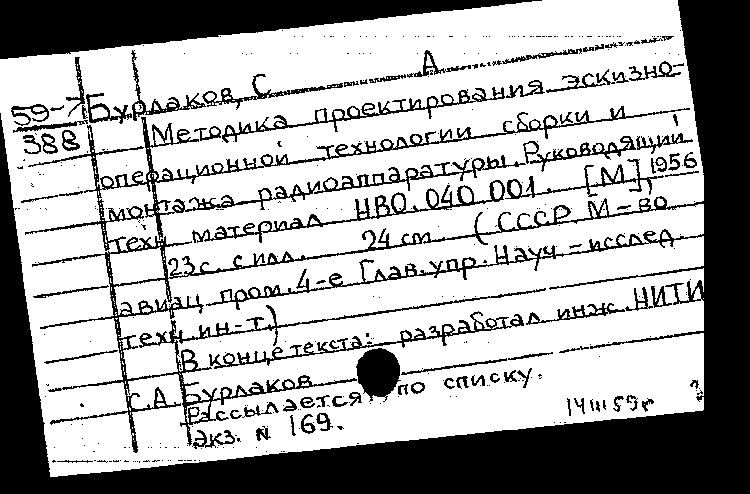 59-7 Бурлаков, С А
388 Методика проектирования эскизно-
операционной технологии сборки и
монтажа радиоаппаратуры. Руководящий
техн материал НВО.040 001. [М], 1956
23с. с илл. 24 см. (СССР М-во
авиац пром. 4-е Глав. упр. Науч.-исслед.
техн. ин-т.)
В конце текста: разработал инж. НИТИ
С.А. Бурлаков
Рассылается по списку.
экз. N 169.
14 III 59г